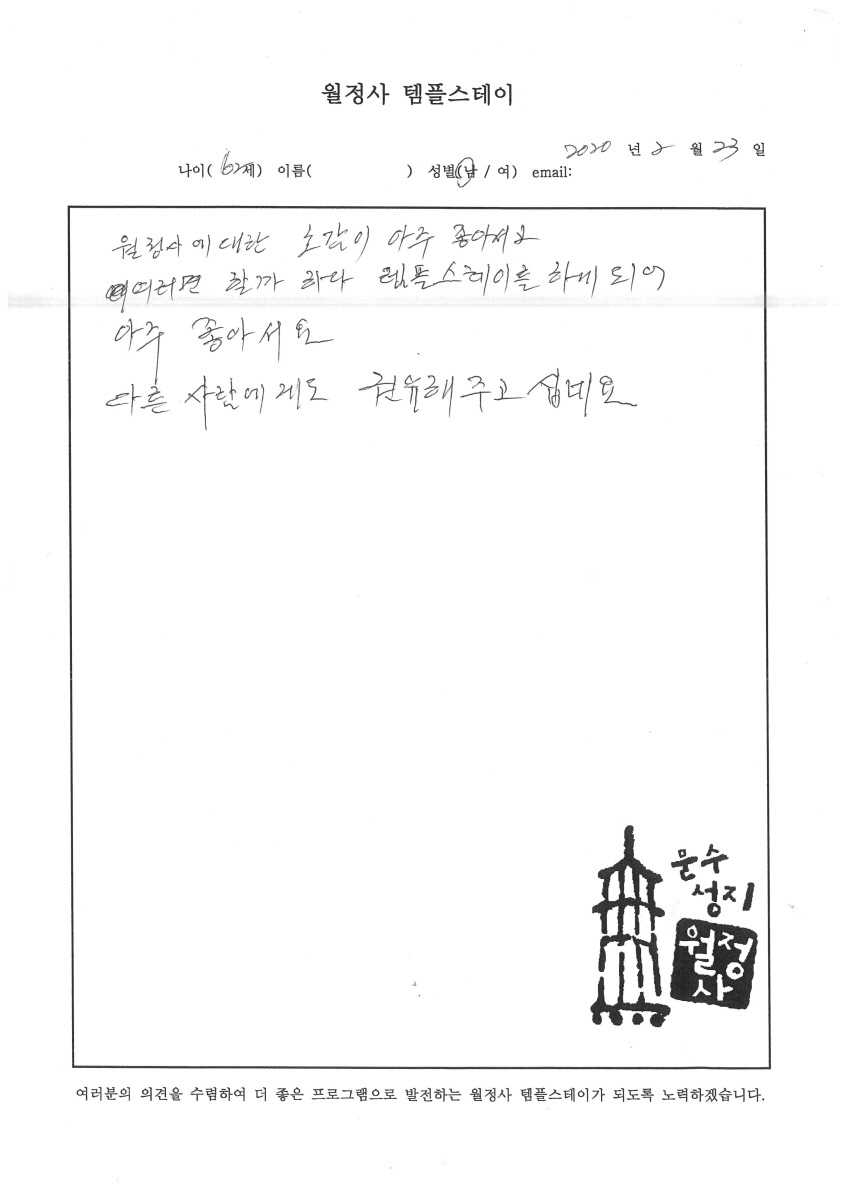 월정사 템플스테이
2020 년 2 월 23 일
나이( 62세) 이름( ) 성별(남 / 여) email:
월정사에 대한 호감이 아주 좋아서요
어떠러면 할까 하다 템플스테이를 하게 되어
아주 좋아서요
다른 사람에게도 권유해주고 십네요
문수
성지
월정
사
여러분의 의견을 수렴하여 더 좋은 프로그램으로 발전하는 월정사 템플스테이가 되도록 노력하겠습니다.